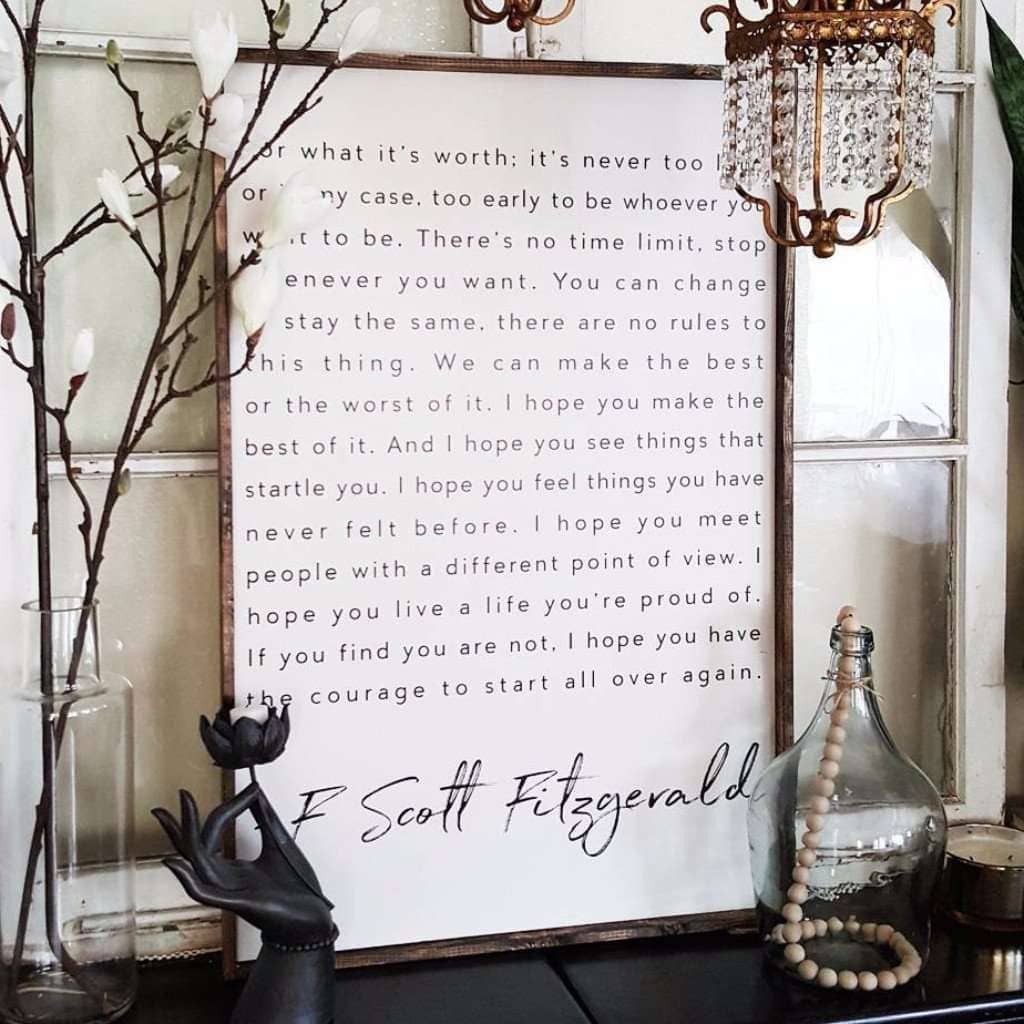 or what it's worth; it's never too
or my case, too early to be whoever you
want to be. There's no time limit, stop
whenever you want. You can change
stay the same, there are no rules to
this thing. We can make the best
or the worst of it. I hope you make the
best of it. And I hope you see things that
startle you. I hope you feel things you have
never felt before. I hope you meet
people with a different point of view. I
hope you live a life you're proud of.
If you find you are not, I hope you have
the courage to start all over again.
F Scott Fitzgerald